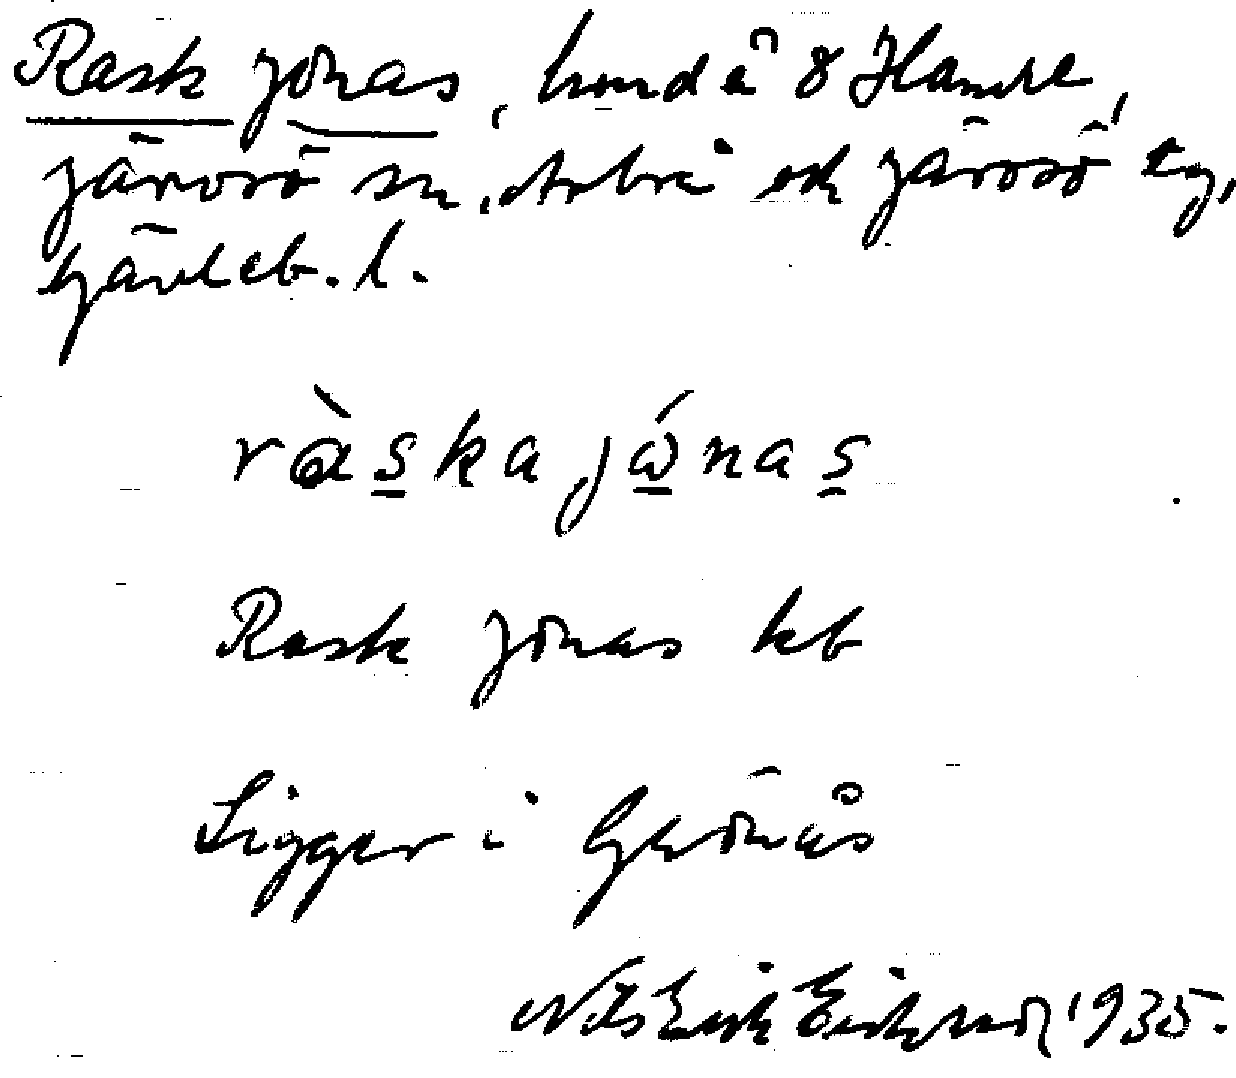 Rask Jonas, bond å 8 Hamre,
Järvsö sn, Arbrå och Järvsö tg,
Gävleb. l.
ràska jónas
Rask Jonas kb
Ligger i Grönås
Nils Erik 1935.